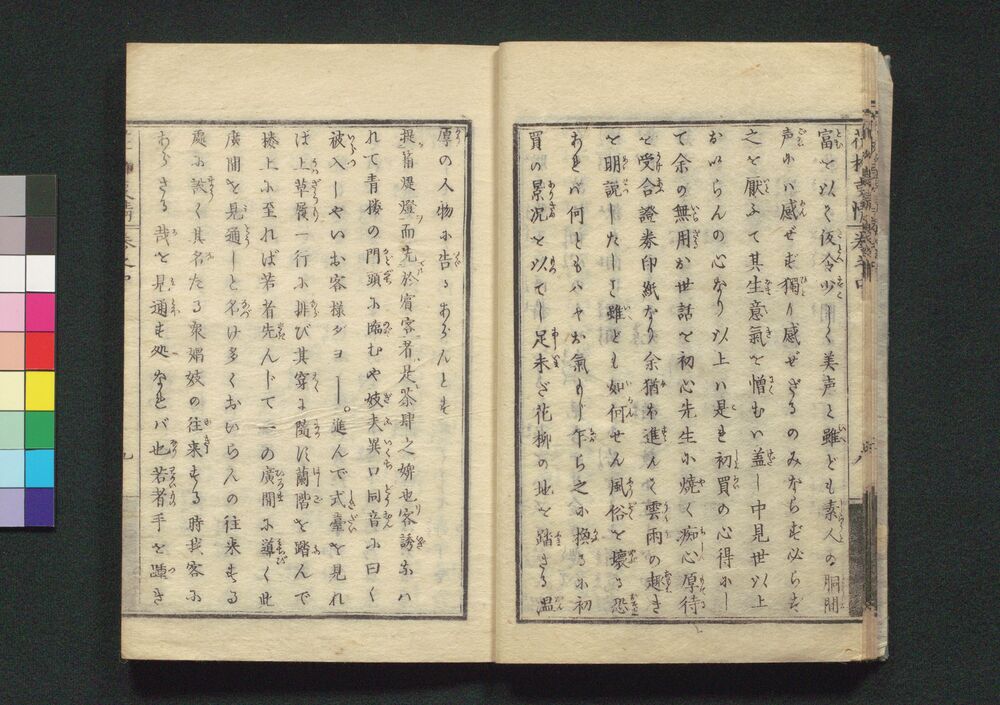 富を以て仮令少しく美声と雖ども素人の胴間
声にハ感ぜず獨り感ぜざるのみならず必らず
之を厭ふて其生意氣を憎むい蓋し中見世以上
おいらんの心なり以上ハ是れ初買の心得にし
て余の無用お世話を初心先生に焼く痴心原待
を受合證券印紙なり余猶ほ進んで雲雨の趣き
を明説したしと雖ども如何せん風俗を壊る恐
あれバ何ともハヤお氣もじ乍ら之に換るに初
買の景况を以てし足未だ花柳の地を踏ざる温
厚の人物に告ゝあらんとす
提箱提燈而先於賓客者是茶肆之婢也客誘なハ
れて青楼の門頭に臨むや妓夫異口同音に曰く
被入ーやいお客様ダヨー。進んで式臺を見れ
ば上草履一行に排び其穿に隨ひ蘭階を踏んで
捲上に至れば若者先んじて一の廣間に導く此
廣間を見通しと名け多くおいらんの往来する
處に設く其名たる衆媚妓の往来する時我客に
あらざる哉を見通す処なれバ也若者手を踵き